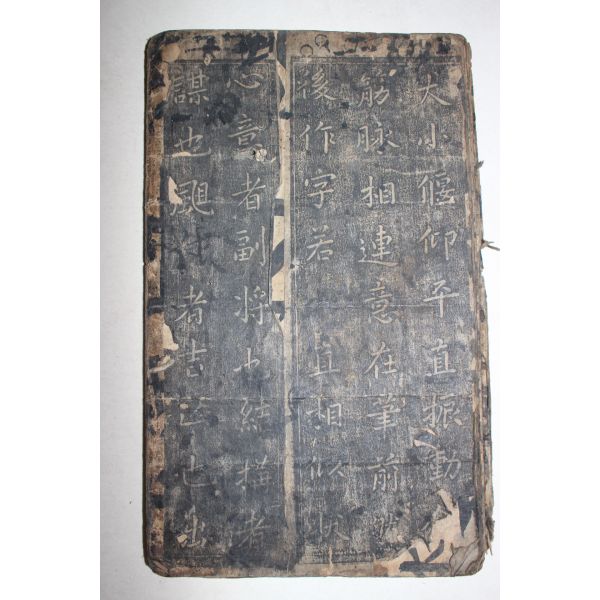 大小偃仰平直振動
筋脉相連意在筆前然
後作字若直相似状
心意者副将也結構者
謀也颺者吉凶也出